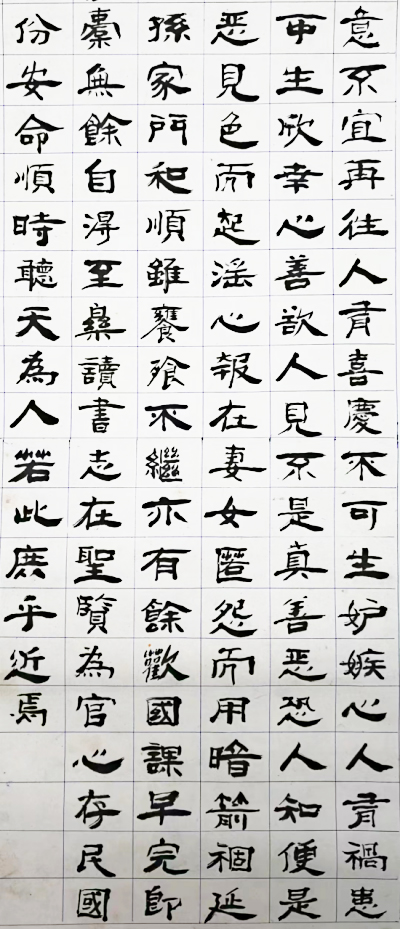 意不宜再往人有喜慶不可生妒嫉心人有禍患
生欣幸心善欲人見不是真善惡恐人知便是
惡見色而起淫心報在妻女匿怨而用暗箭禍延
孫家門和順雖饔飧不繼亦有餘歡國課早完即
橐無餘自得至樂讀書志在聖賢為官心存民國
份安命順時聽天為人若此庶乎近焉